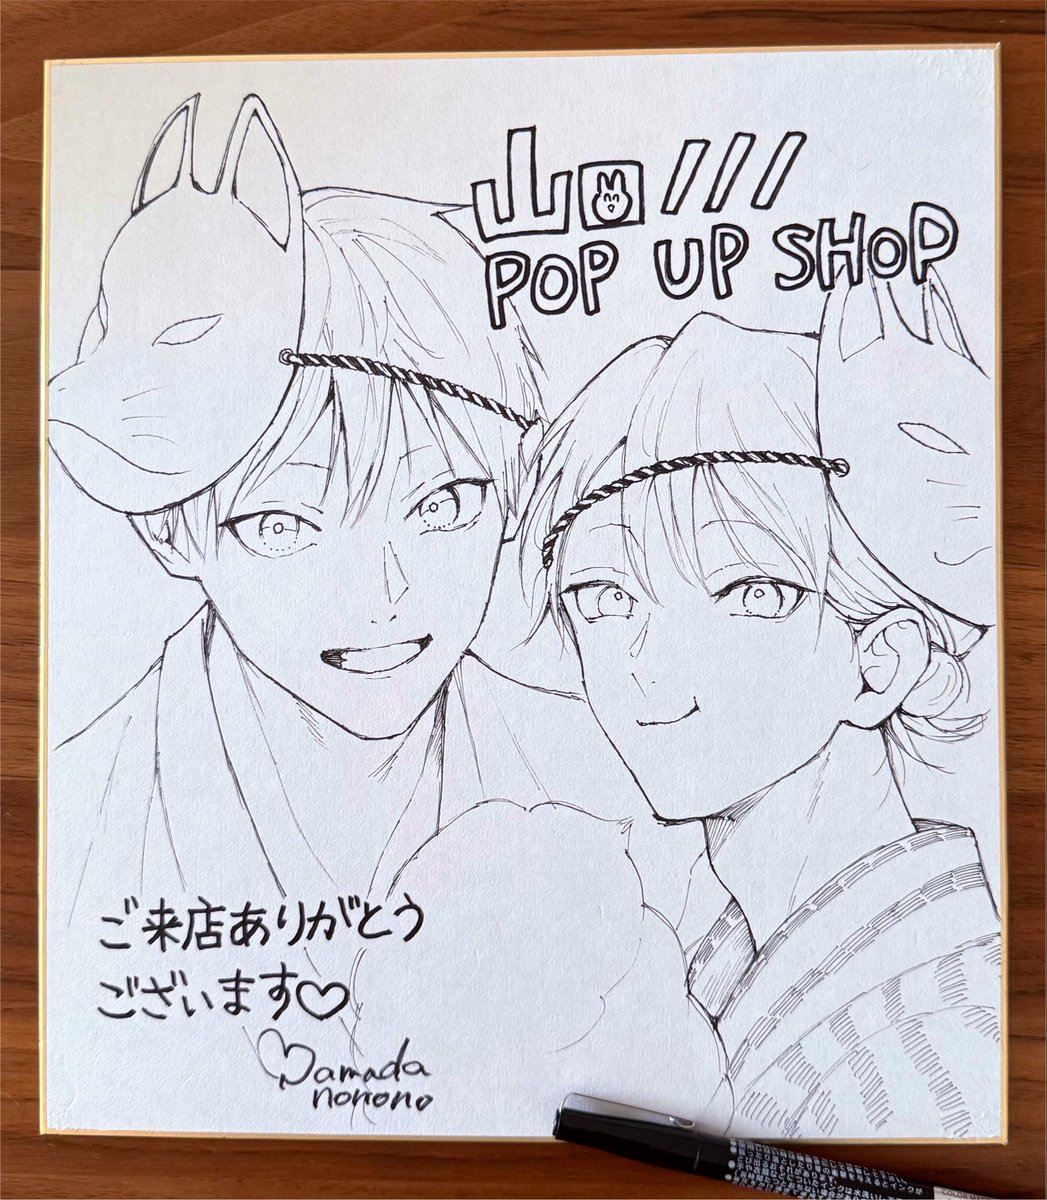 山田ノノノ
POP UP SHOP
ご来店ありがとう
ございます♡
Yamada
nonono